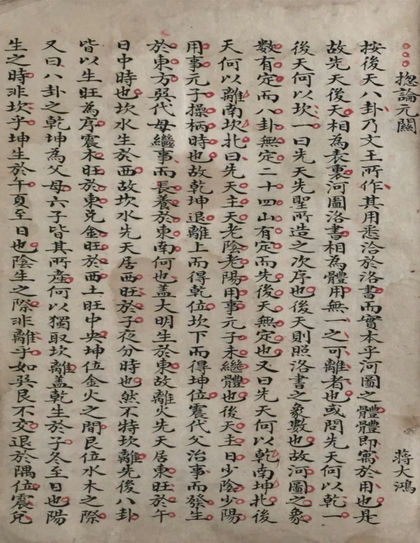 總論元關
蔣大鴻
按後天八卦乃文王所作其用悉洽於洛書而實本乎河圖之體體即寓於用也是
故先天後天相為表裏河圖洛書相為體用無一之可離者也或問先天何以乾一
後天何以坎一曰先天先聖所造之次序也後天則照洛書之象數也故河圖之象
數有定而八卦無定二十四山有定而先後天無定也又曰先天何以乾南坤北後
天何以離南坎北曰先天主天老陰老陽用事元子未繼體也後天主日少陰少陽
用事元子操柄時也故乾坤退離上而得乾位坎下而得坤位震代父治事而發生
於東方巽代母繼事而長養於東南何也蓋大明生於東故離火先天居東旺於
日中時也坎水生於西故坎水先天居西旺於子夜分時也然不特坎離先後八卦
皆以生旺為序震木旺於東兌金旺於西土旺中央坤位金火之間艮位水木之際
又曰八卦之乾坤為父母六子皆其所產何以獨取坎離蓋乾生於子冬至日也陽
生之時非坎乎坤生於午夏至日也陰生之際非離乎如巽艮不交退於隅位震兌